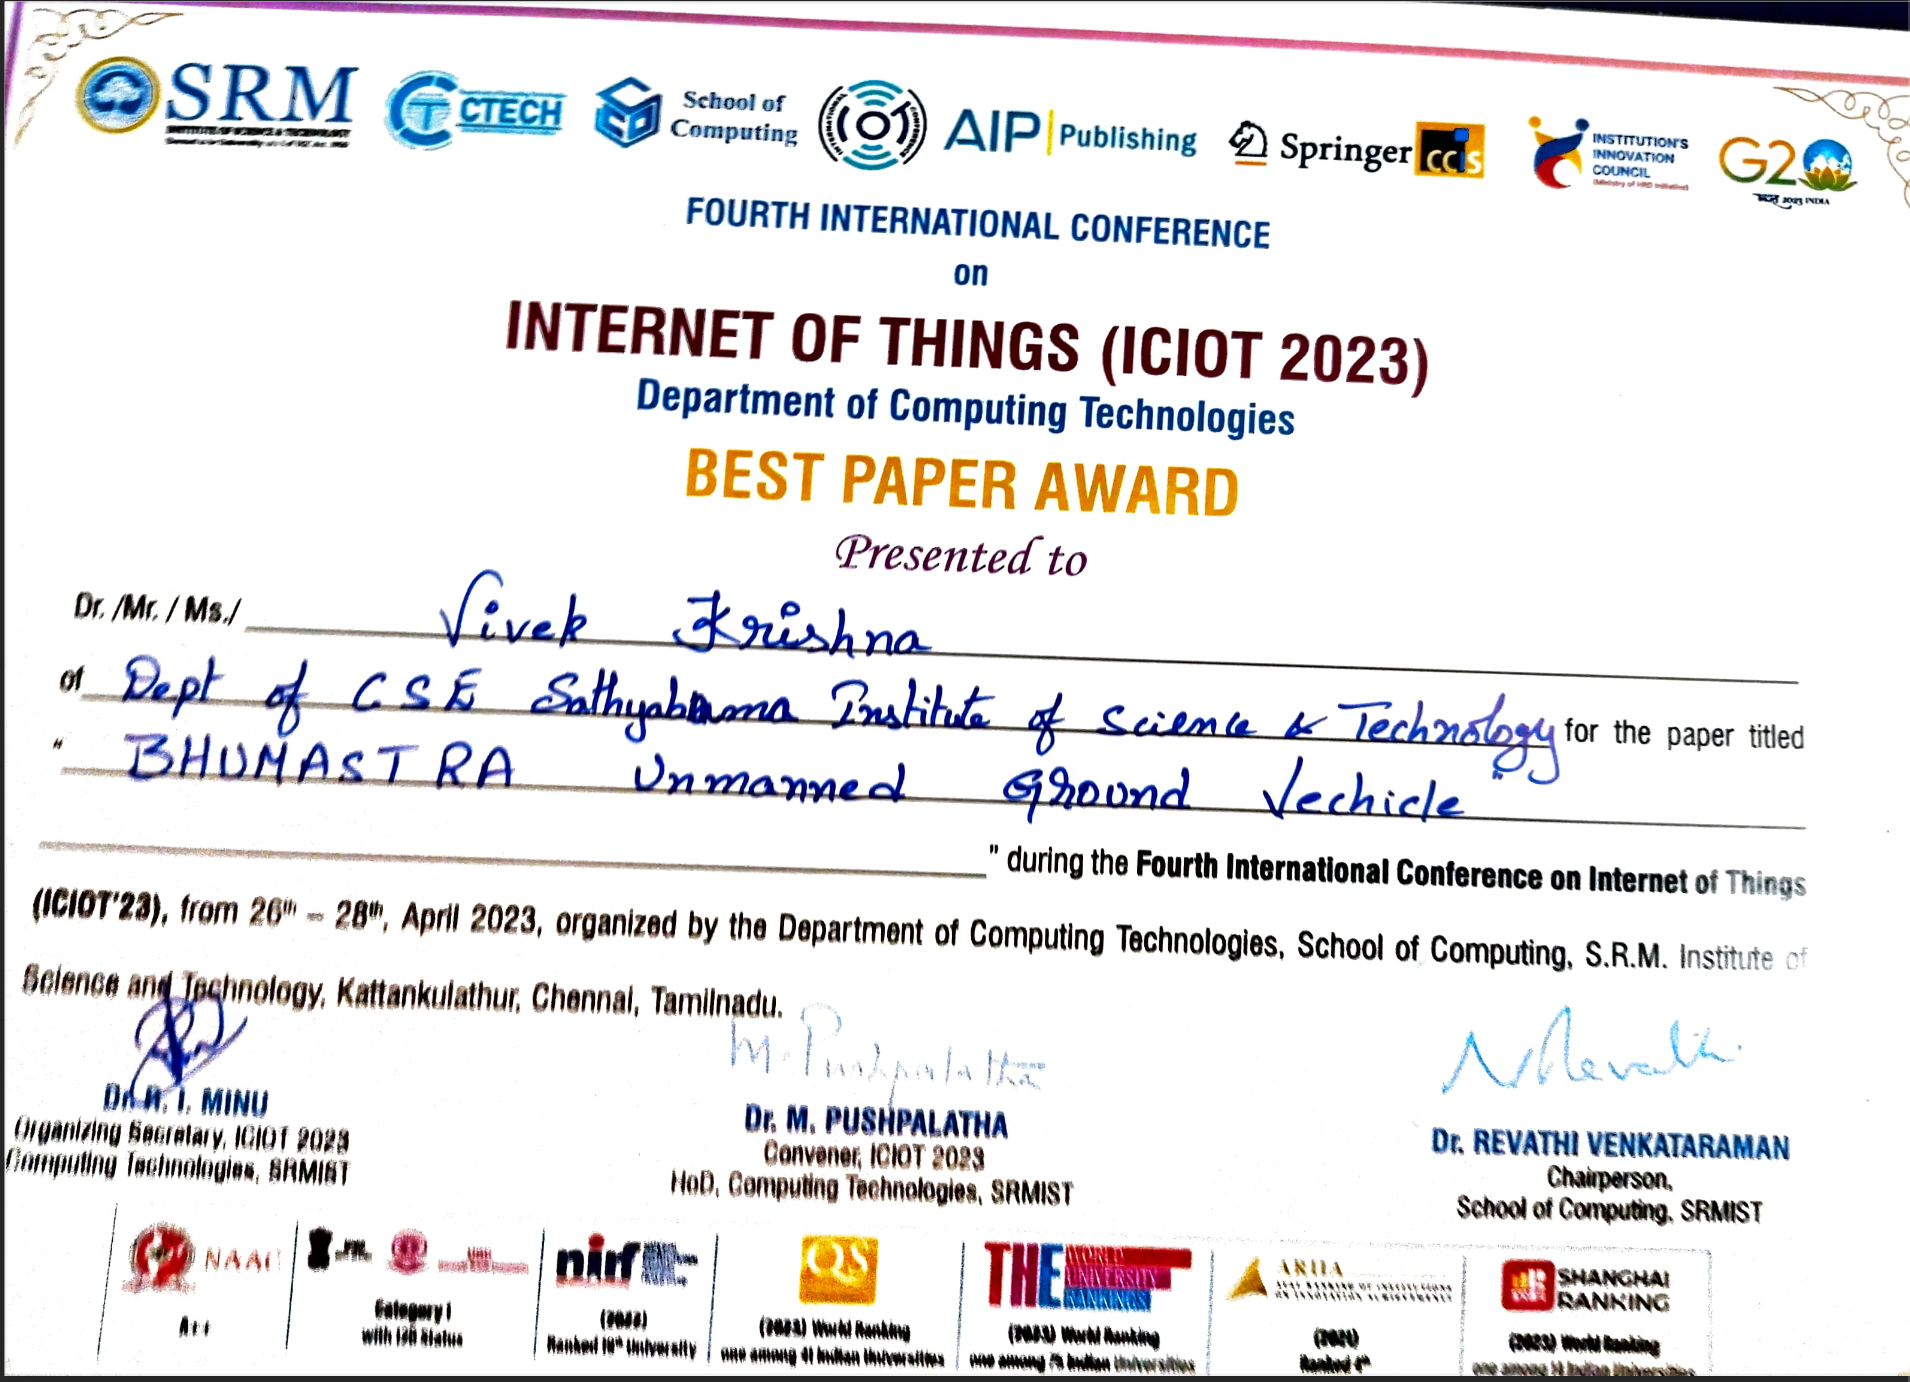 SRM
INSTITUTE OF SCIENCE & TECHNOLOGY
CTECH
School of
Computing
AIP | Publishing
Springer
CCIS
INSTITUTION'S
INNOVATION
COUNCIL
(Ministry of HRD Initiative)
G20
भारत 2023 INDIA
FOURTH INTERNATIONAL CONFERENCE
on
INTERNET OF THINGS (ICIOT 2023)
Department of Computing Technologies
BEST PAPER AWARD
Presented to
Dr. /Mr. / Ms./ Vivek Krishna
of Dept of CSE Sathyabama Institute of Science & Technology for the paper titled
" BHUMASTRA Unmanned Ground Vechicle "
" during the Fourth International Conference on Internet of Things
(ICIOT'23), from 26th – 28th, April 2023, organized by the Department of Computing Technologies, School of Computing, S.R.M. Institute of
Science and Technology, Kattankulathur, Chennai, Tamilnadu.
M. Pushpalatha
N Revathi
Dr. R. I. MINU
Organizing Secretary, ICIOT 2023
Computing Technologies, SRMIST
Dr. M. PUSHPALATHA
Convener, ICIOT 2023
HoD, Computing Technologies, SRMIST
Dr. REVATHI VENKATARAMAN
Chairperson,
School of Computing, SRMIST
NAAC
A++
Category I
with 12B Status
nirf
Ranked 18th University
QS
(2023) World Ranking
one among 41 Indian Universities
THE WORLD
UNIVERSITY
RANKINGS
(2023) World Ranking
one among 75 Indian Universities
ARIIA
(2021)
Ranked 4th
SHANGHAI
RANKING
(2023) World Ranking
one among Indian Universities